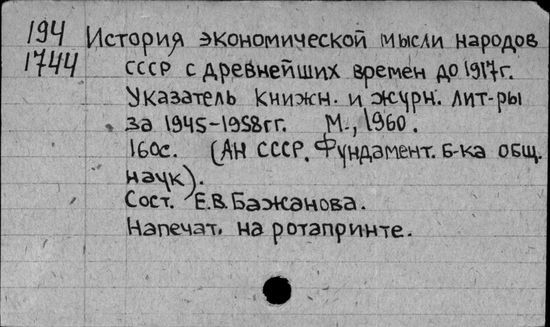 194 История экономической мысли народов
1744 СССР с древнейших времен до 1917г.
Указатель книжн. и журн. лит-ры
за 1945-1958гг. М., 1960.
160с. (АН СССР. Фундамент. б-ка общ.
наук).
Сост. Е.В. Бажанова.
Напечат. на ротапринте.